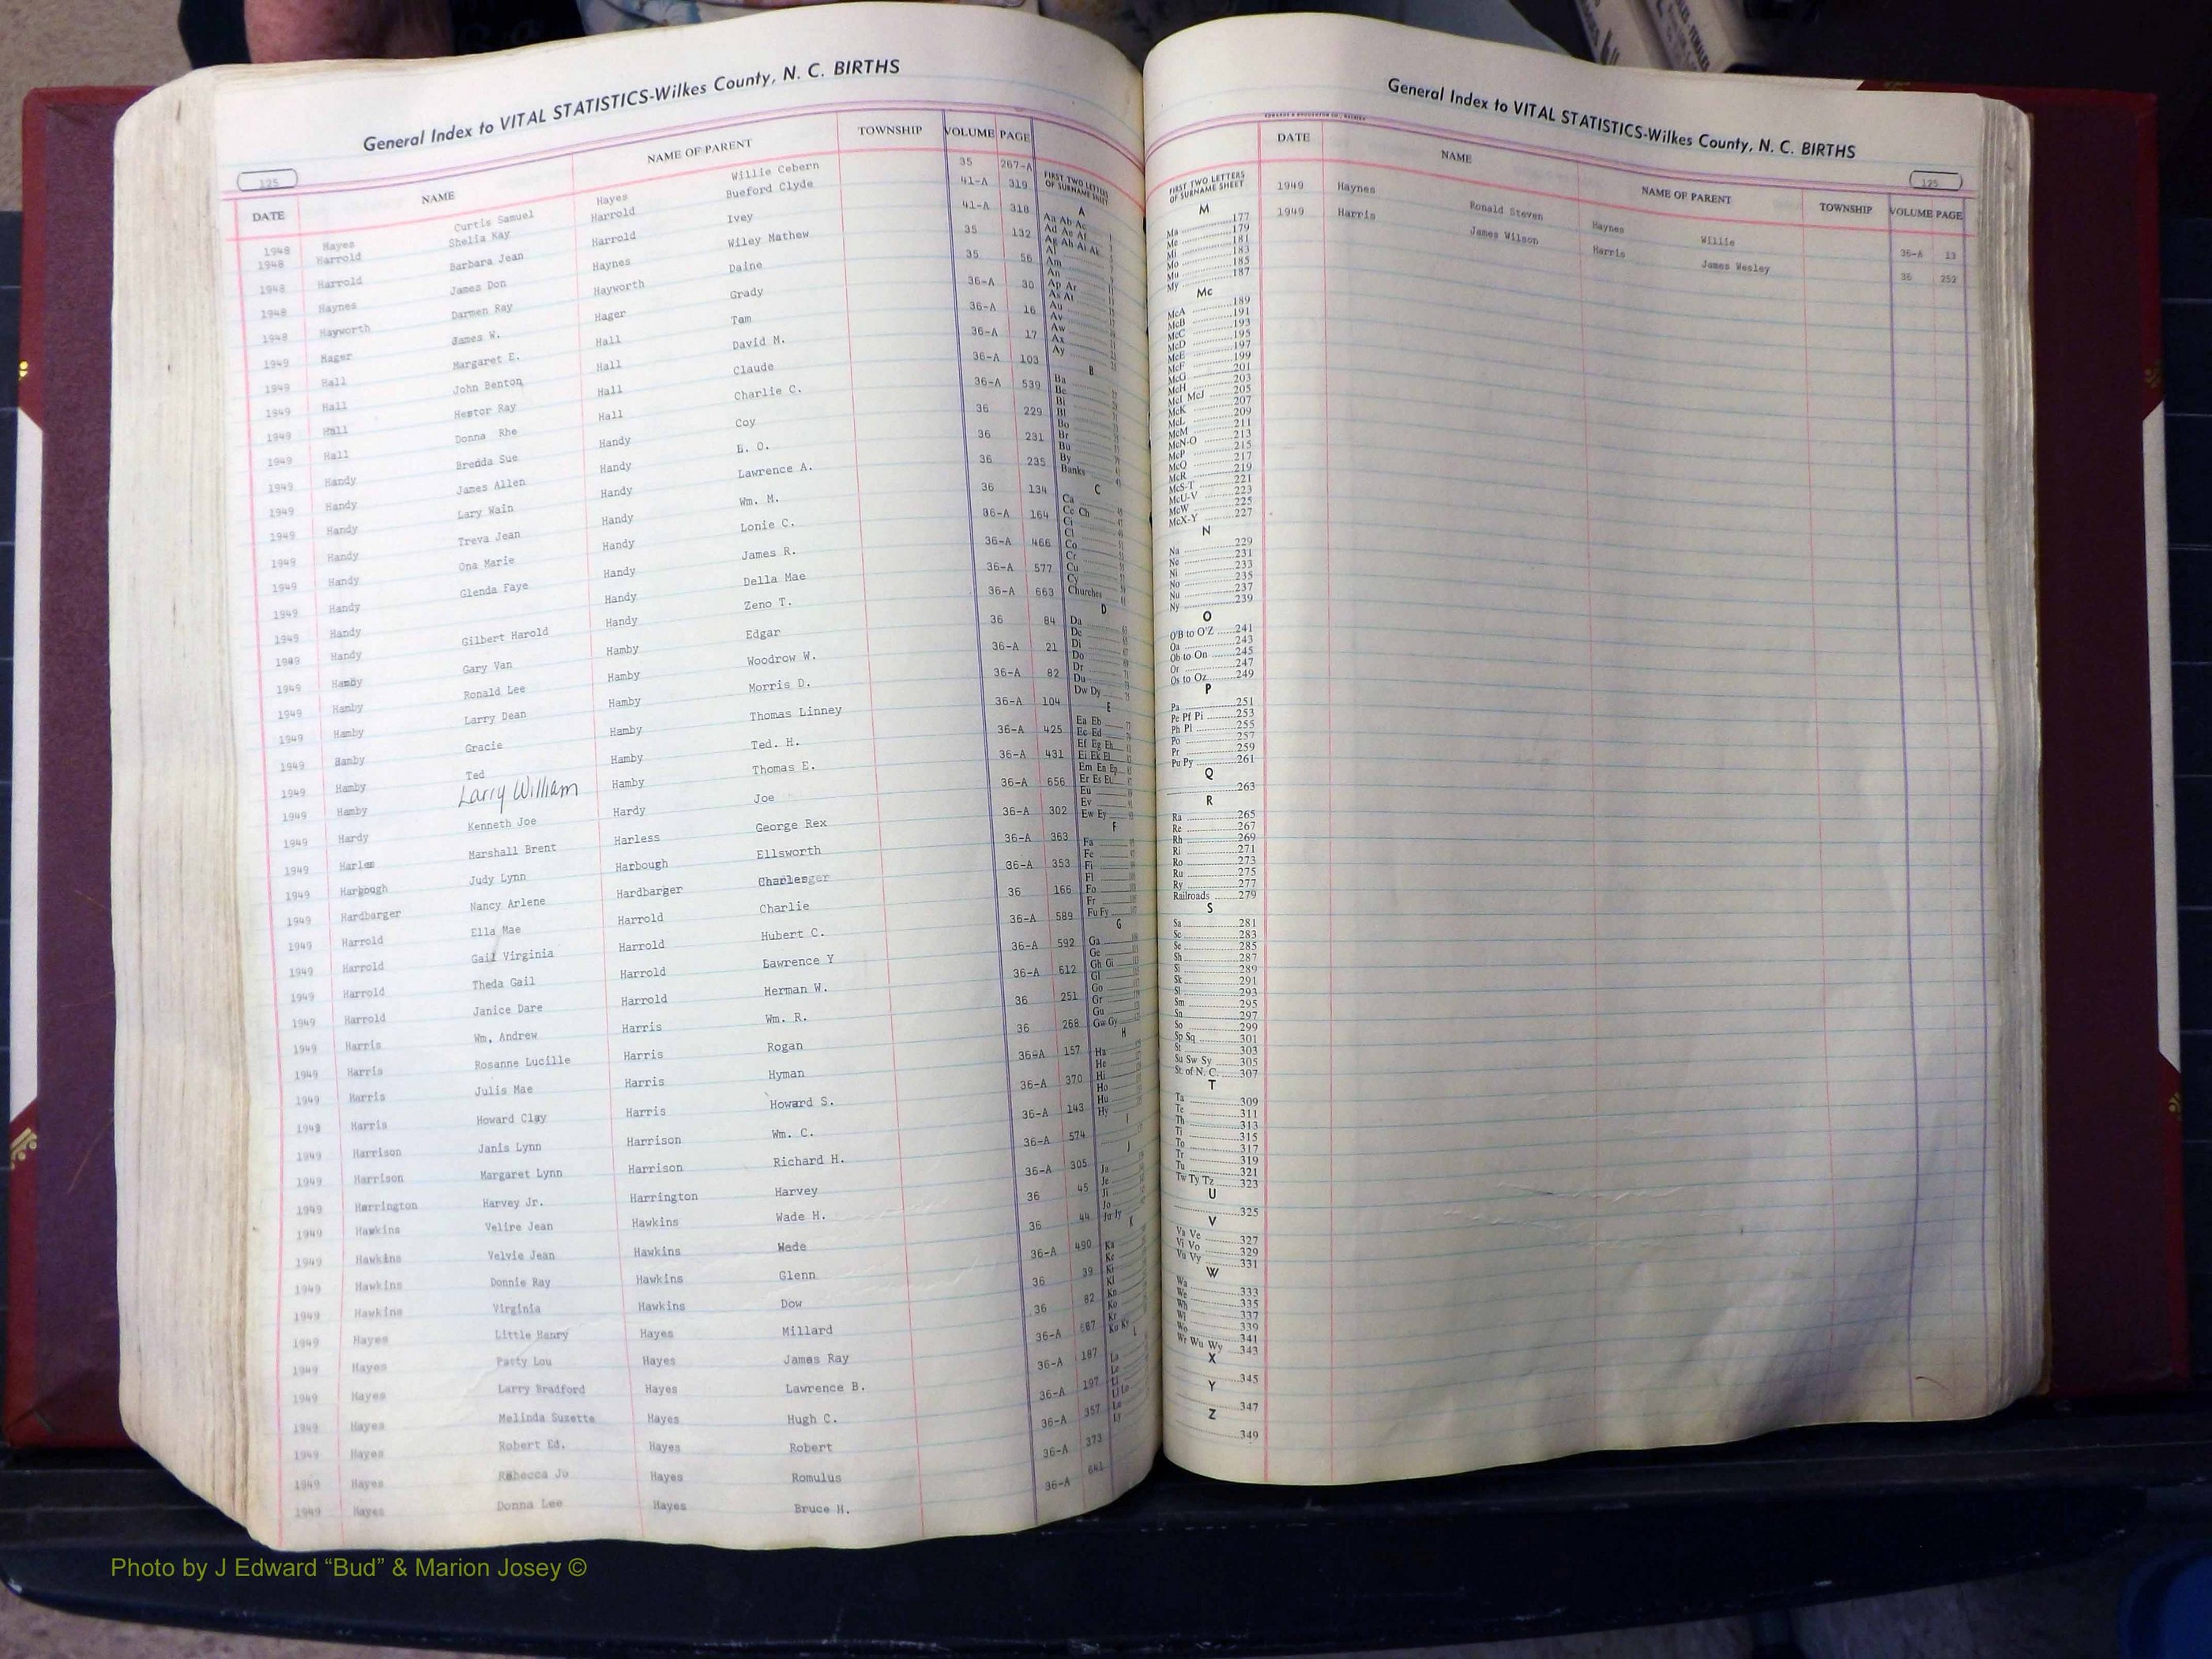 General Index to VITAL STATISTICS-Wilkes County, N. C. BIRTHS
125
DATE NAME NAME OF PARENT TOWNSHIP VOLUME PAGE
1948 Hayes Curtis Samuel Hayes Willie Cebern 35 267-A
1948 Harrold Shelia Kay Harrold Bueford Clyde 41-A 319
1948 Harrold Barbara Jean Harrold Ivey 41-A 318
1948 Haynes James Don Haynes Wiley Mathew 35 132
1948 Hayworth Darmen Ray Hayworth Daine 35 56
1949 Hager James W. Hager Grady 36-A 30
1949 Hall Margaret E. Hall Tom 36-A 16
1949 Hall John Benton Hall David M. 36-A 17
1949 Hall Hector Ray Hall Claude 36-A 103
1949 Hall Donna Rhe Hall Charlie C. 36-A 539
1949 Handy Brenda Sue Handy Coy 36 229
1949 Handy James Allen Handy E. O. 36 231
1949 Handy Lary Wain Handy Lawrence A. 36 235
1949 Handy Treva Jean Handy Wm. M. 36 134
1949 Handy Ona Marie Handy Lonie C. 36-A 164
1949 Handy Glenda Faye Handy James R. 36-A 466
1949 Handy Handy Della Mae 36-A 577
1949 Handy Gilbert Harold Handy Zeno T. 36-A 663
1949 Hamby Gary Van Hamby Edgar 36 84
1949 Hamby Ronald Lee Hamby Woodrow W. 36-A 21
1949 Hamby Larry Dean Hamby Morris D. 36-A 82
1949 Hamby Gracie Hamby Thomas Linney 36-A 104
1949 Hamby Ted Hamby Ted. H. 36-A 425
1949 Hamby Larry William Hamby Thomas E. 36-A 431
1949 Hardy Kenneth Joe Hardy Joe 36-A 656
1949 Marshall Brent Harless George Rex 36-A 302
1949 Harbough Judy Lynn Harbough Ellsworth 36-A 363
1949 Hardbarger Nancy Arlene Hardbarger 36-A 353
1949 Harrold Ella Mae Harrold Charlie 36 166
1949 Harrold Gail Virginia Harrold Hubert C. 36-A 589
1949 Harrold Theda Gail Harrold Lawrence Y 36-A 592
1949 Harrold Janice Dare Harrold Herman W. 36-A 612
1949 Harris Wm. Andrew Harris Wm. R. 36 251
1949 Harris Rosanne Lucille Harris Rogan 36 268
1949 Harris Julis Mae Harris Hyman 36-A 157
1949 Harris Howard Clay Harris Howard S. 36-A 370
1949 Harrison Janis Lynn Harrison Wm. C. 36-A 143
1949 Harrison Margaret Lynn Harrison Richard H. 36-A 574
1949 Harrington Harvey Jr. Harrington Harvey 36-A 305
1949 Hawkins Velire Jean Hawkins Wade H. 36 45
1949 Hawkins Velvie Jean Hawkins Wade 36 44
1949 Hawkins Donnie Ray Hawkins Glenn 36-A 490
1949 Hawkins Virginia Hawkins Dow 36 39
1949 Hayes Little Henry Hayes Millard 36 82
1949 Hayes Patty Lou Hayes James Ray 36-A 687
1949 Hayes Larry Bradford Hayes Lawrence B. 36-A 187
1949 Hayes Melinda Suzette Hayes Hugh C. 36-A 197
1949 Hayes Robert Ed. Hayes Robert 36-A 357
1949 Hayes Rebecca Jo Hayes Romulus 36-A 373
1949 Hayes Donna Lee Hayes Bruce H. 36-A 641
FIRST TWO LETTERS
OF SURNAME SHEET
A
Aa Ab Ac
Ad Ae Af
Ag Ah Ai Ak
Al
Am
An
Ap Ar
As At
Au
Av
Aw
Ax
Ay
B
Ba
Be
Bi
Bl
Bo
Br
Bu
By
Banks
C
Ca
Ce Ch
Ci
Cl
Co
Cr
Cu
Cy
Churches
D
Da
De
Di
Do
Dr
Du
Dw Dy
E
Ea Eb
Ec Ed
Ef Eg Eh
Ei Ek El
Em En Ep
Er Es Et
Eu
Ev
Ew Ey
F
Fa
Fe
Fi
Fl
Fo
Fr
Fu Fy
G
Ga
Ge
Gh Gi
Gl
Go
Gr
Gu
Gw Gy
H
Ha
He
Hi
Ho
Hu
Hy
I
J
Ja
Je
Ji
Jo
Ju Jy
K
Ka
Ke
Ki
Kl
Kn
Ko
Kr
Ku Ky
L
La
Le
Li
Ll Lo
Lu
Ly
General Index to VITAL STATISTICS-Wilkes County, N. C. BIRTHS
125
EDWARDS & BROUGHTON CO., RALEIGH
DATE NAME NAME OF PARENT TOWNSHIP VOLUME PAGE
1949 Haynes Ronald Steven Haynes Willie 36-A 13
1949 Harris James Wilson Harris James Wesley 36 252
FIRST TWO LETTERS
OF SURNAME SHEET
M
Ma 177
Me 179
Mi 181
Mo 183
Mu 185
My 187
Mc
McA 189
McB 191
McC 193
McD 195
McE 197
McF 199
McG 201
McH 203
McI McJ 205
McK 207
McL 209
McM 211
McN-O 213
McP 215
McQ 217
McR 219
McS-T 221
McU-V 223
McW 225
McX-Y 227
N
Na 229
Ne 231
Ni 233
No 235
Nu 237
Ny 239
O
O'B to O'Z 241
Oa 243
Ob to On 245
Or 247
Os to Oz 249
P
Pa 251
Pe Pf Pi 253
Ph Pl 255
Po 257
Pr 259
Pu Py 261
Q
263
R
Ra 265
Re 267
Rh 269
Ri 271
Ro 273
Ru 275
Ry 277
Railroads 279
S
Sa 281
Sc 283
Se 285
Sh 287
Si 289
Sk 291
Sl 293
Sm 295
Sn 297
So 299
Sp Sq 301
St 303
Su Sw Sy 305
St. of N. C. 307
T
Ta 309
Te 311
Th 313
Ti 315
To 317
Tr 319
Tu 321
Tw Ty Tz 323
U
325
V
Va Ve 327
Vi Vo 329
Vu Vy 331
W
Wa 333
We 335
Wh 337
Wi 339
Wo 341
Wr Wu Wy 343
X
345
Y
347
Z
349
Photo by J Edward “Bud” & Marion Josey ©